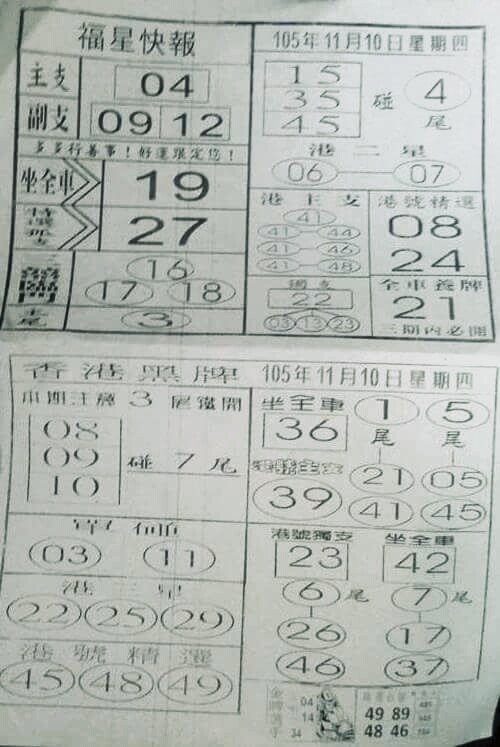 福星快報
主支 04
副支 09 12
多多行善事！好運跟定您！
坐全車 19
特選獨支 27
三關
16
17 18
主尾 3
105年11月10日星期四
15
35 碰 4
45 尾
港二星
06 07
港主支
41
41 44
41 46
41 48
獨支
22
03 13 23
港號精選
08
24
全車養牌
21
三期內必開
香港黑牌
本期注意 3 尾鐵開
08
09 碰 7 尾
10
03 11
港三星
22 25 29
港號精選
45 48 49
105年11月10日星期四
坐全車
36
39
1 5
尾 尾
21 05
41 45
港號獨支
23
6 尾
26
46
坐全車
42
7 尾
17
37
金牌選手
04
14
34
49 89
48 46